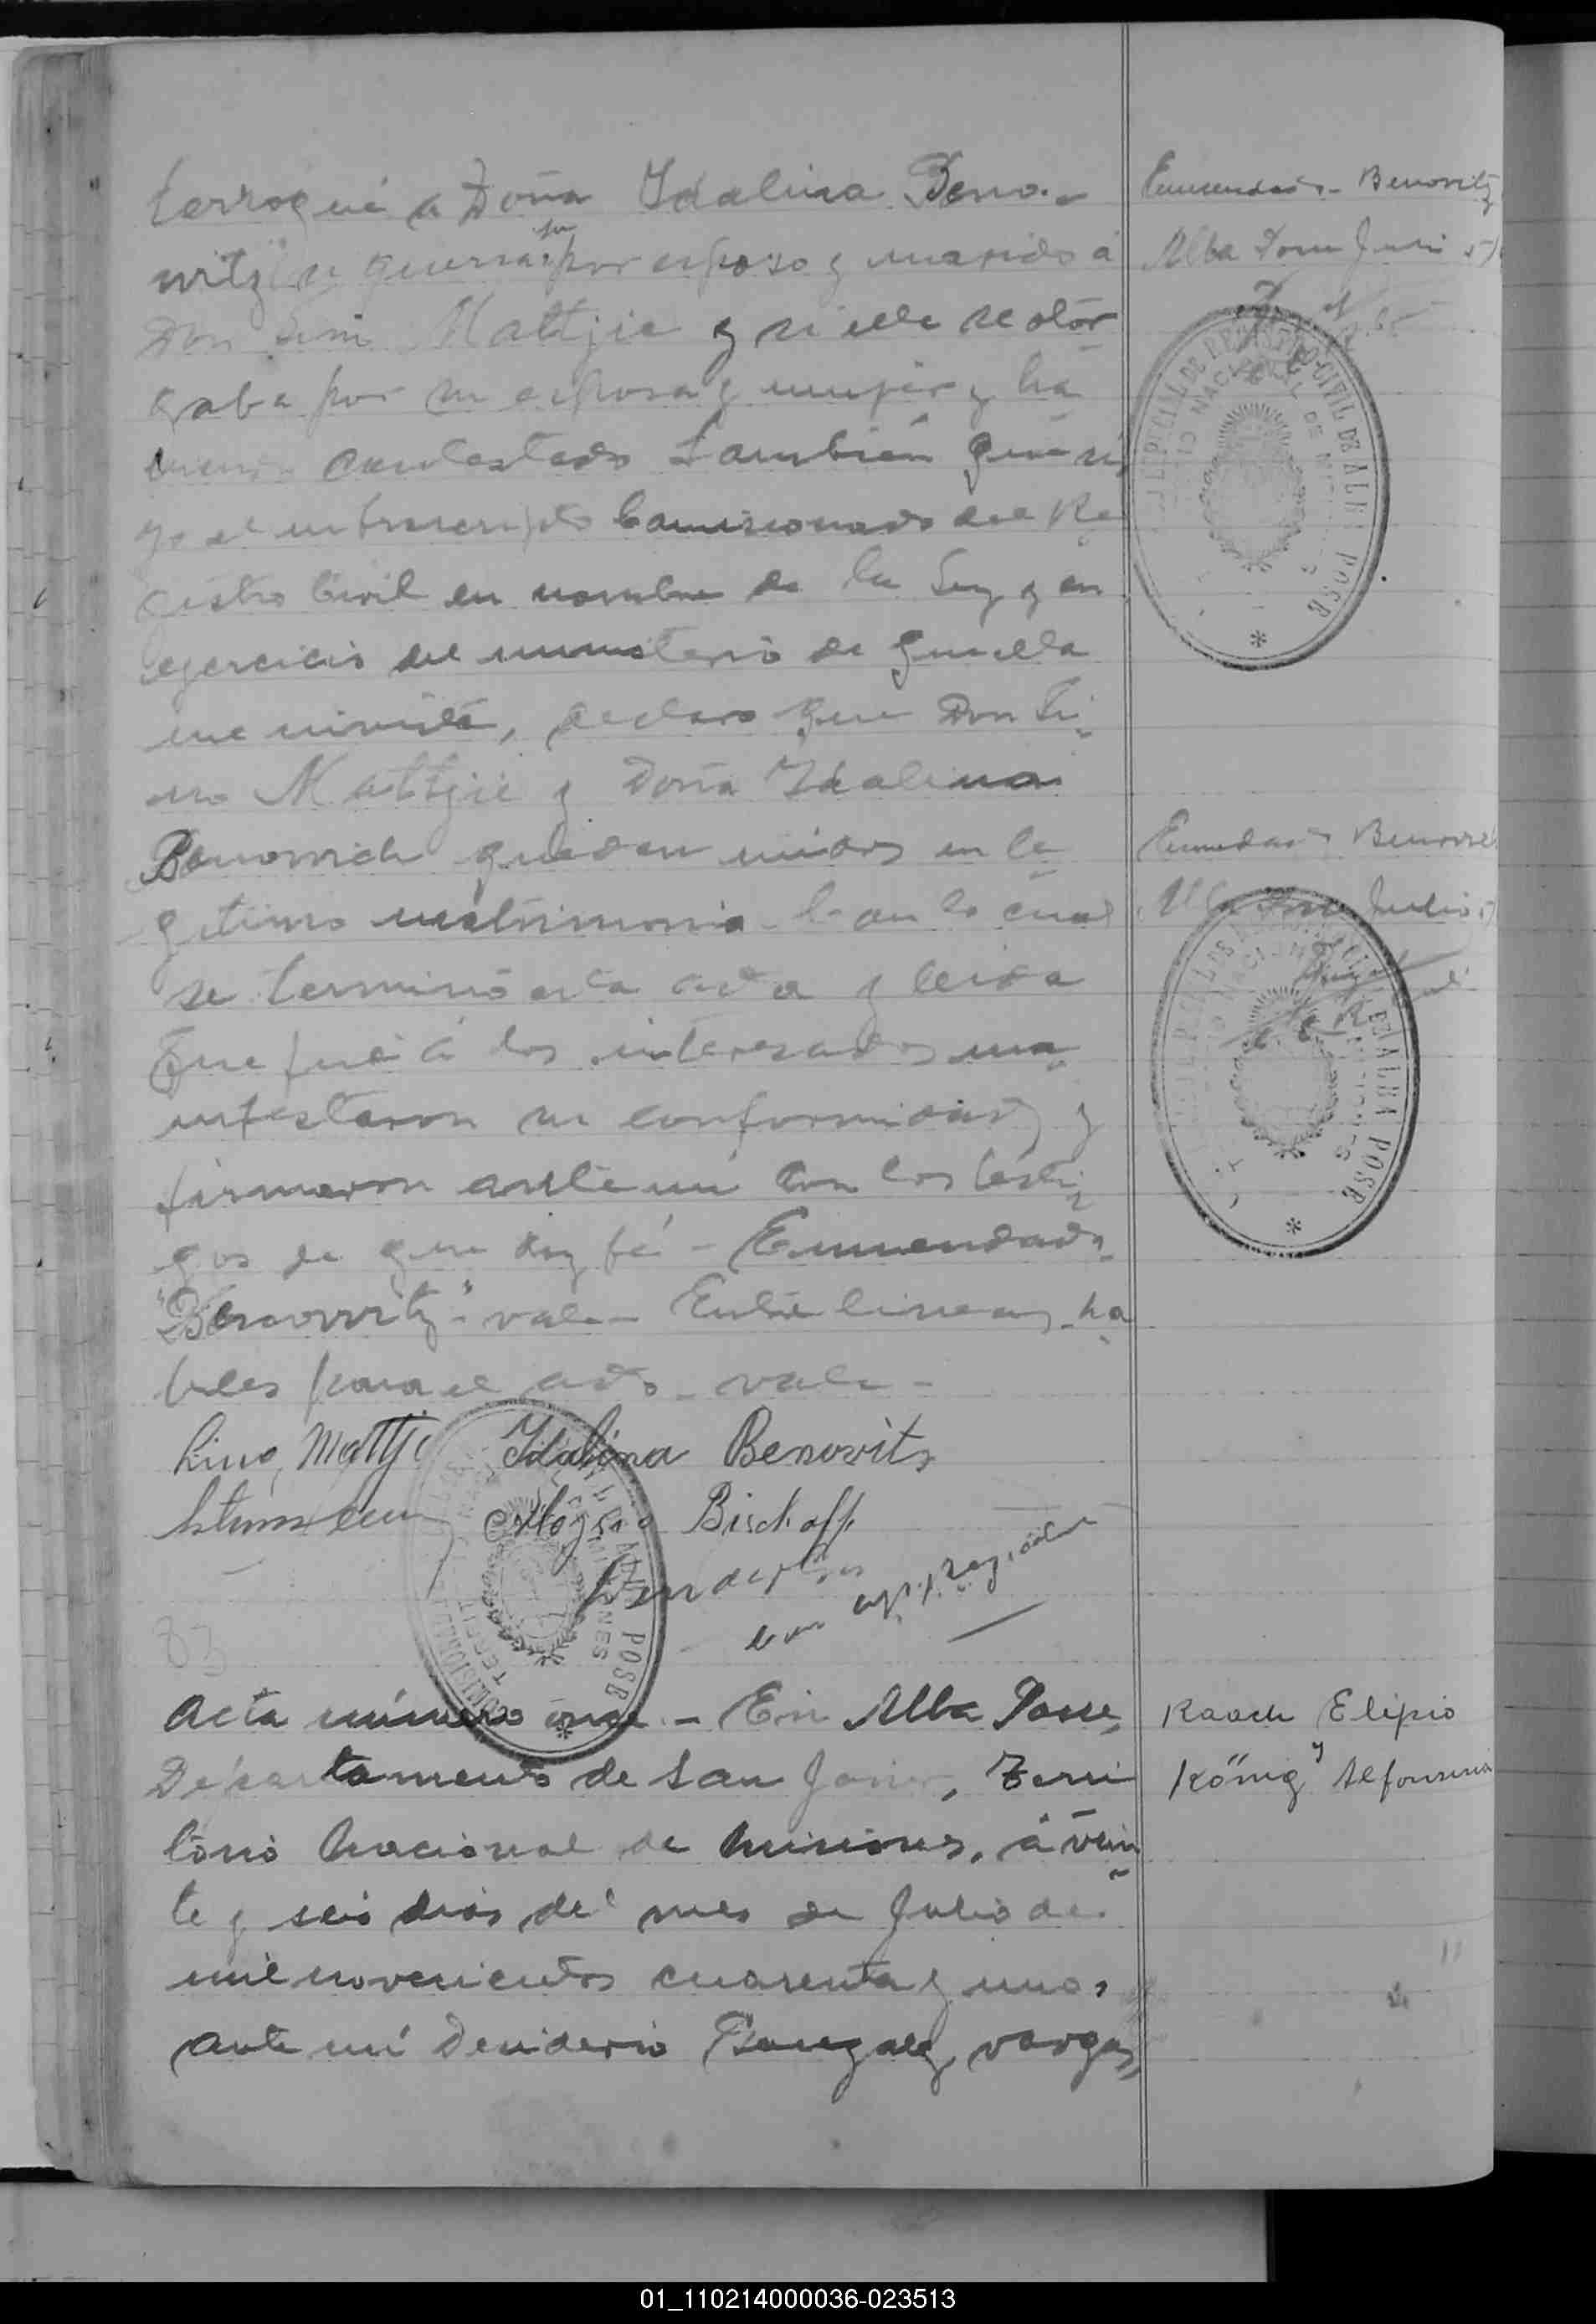 terrogué a Doña Idalina Beno-
witz si quería su por esposo y marido á
Don Lino Mattjie y si ella se otor
gaba por su esposa y mujer y ha
contestado también que si,
yo el infrascripto Comisionado del Re
gistro Civil en nombre de la Ley y en
ejercicio del ministerio de que ella
me inviste, declaro que Don Li-
no Mattjie y Doña Idalina
Benowich quedan unidos en le
gitimo matrimonio. Con lo cual
se terminó esta acta y leida
que fué á los interesados ma
nifestaron su conformidad y
firmaron ante mí con los testi
gos de que doy fé - Enmendado
"Benowitz" - vale - Entre lineas - ha
biles para el acto - vale -
Lino Mattje Idalina Benovits
Bischoff
83
Acta número once. - En Alba Posse,
Departamento de San Javier, Terri
torio Nacional de Misiones, á vein
te y seis dias del mes de Julio de
mil novecientos cuarenta y uno,
ante mí Desiderio Gonzalez Vargas,
Enmendado - Benovitz
Alba Posse Junio
REGISTRO CIVIL DE ALBA POSSE
Alba Posse Julio
ALBA POSSE
Raach Elipio
y
König Alfonsina
01_110214000036-023513